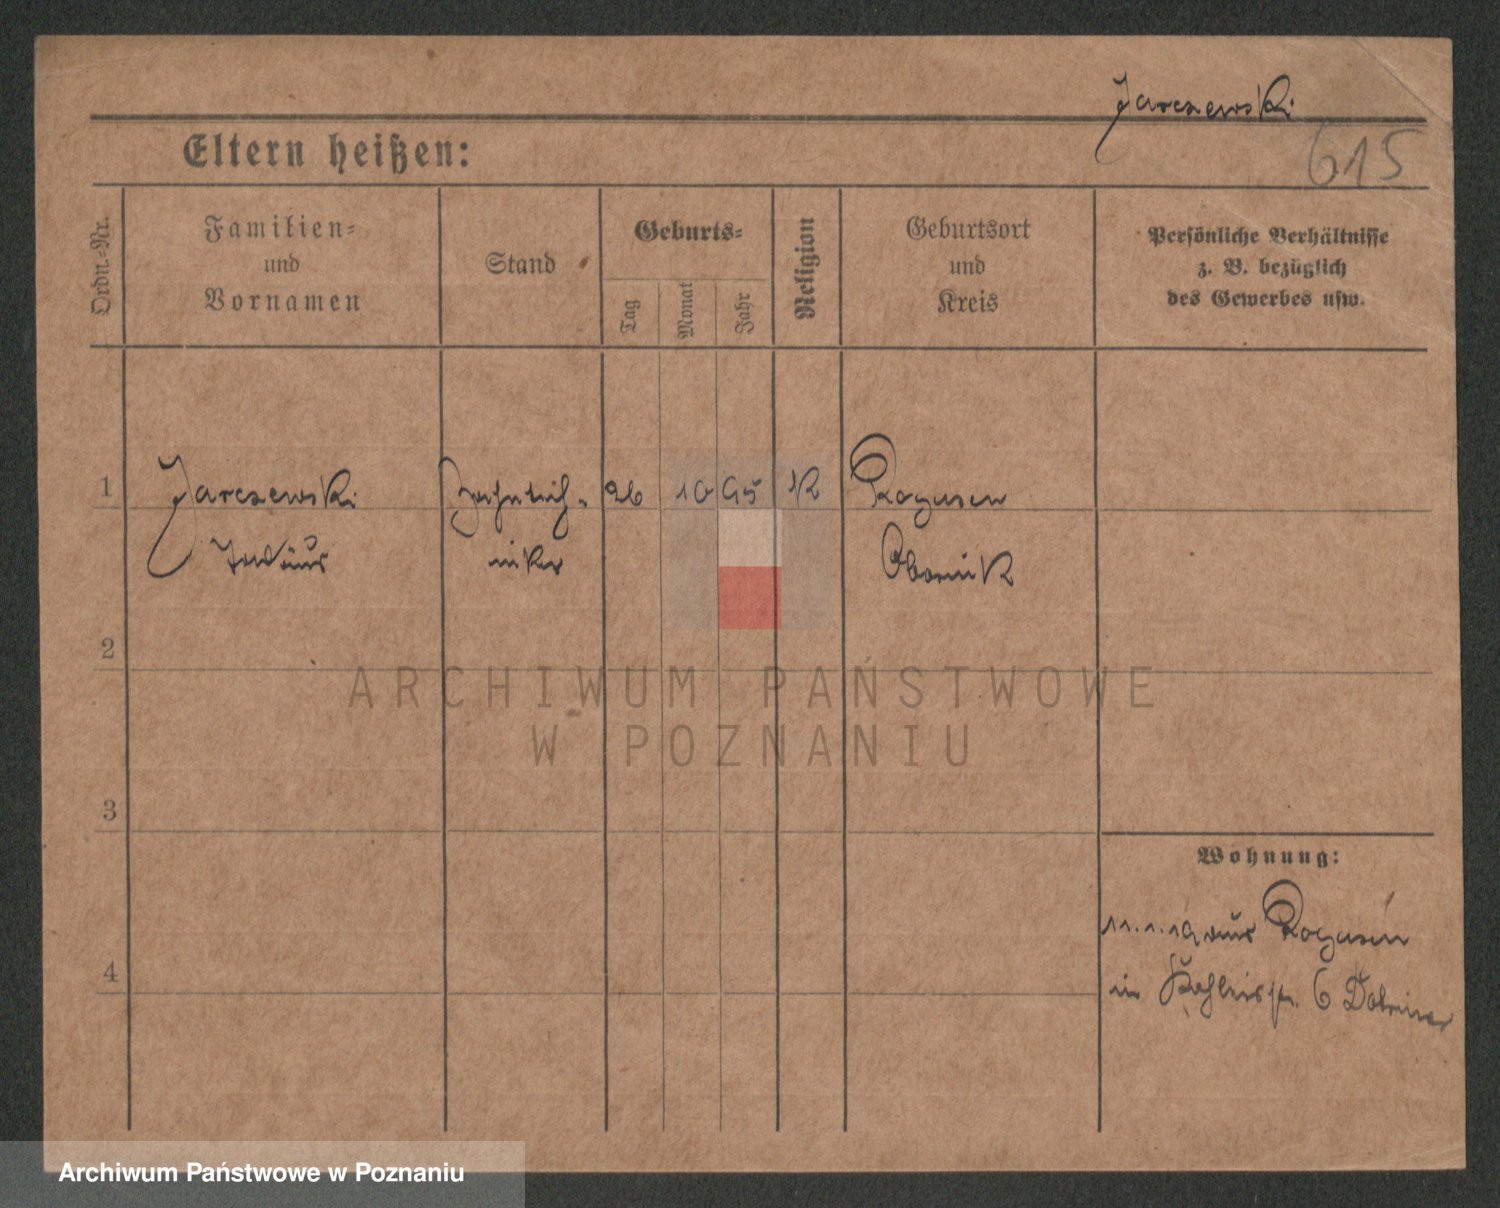 Jarczewski
615
Eltern heißen:
Ordn.-Nr.
Familien-
und
Vornamen
Stand
Geburts-
Tag
Monat
Jahr
Religion
Geburtsort
und
Kreis
Persönliche Verhältnisse
z. B. bezüglich
des Gewerbes usw.
1
Jarczewski
Zahntech-
niker
26
10
95
K
Rogasen
Obornik
2
ARCHIWUM PAŃSTWOWE
W POZNANIU
3
Wohnung:
11.1.19 aus Rogasen
4
in 6
Archiwum Państwowe w Poznaniu